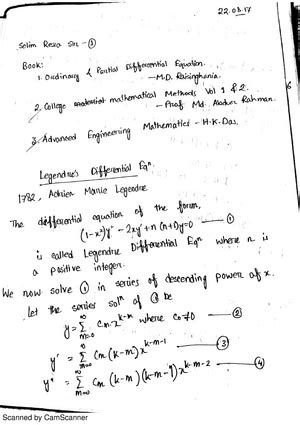 22.03.17
Selim Reza Sir - ①
Book:
1. Ordinary & Partial Differential Equation.
- M.D. Raisinghania.
2. College mathematical Methods Vol 1 & 2.
- Prof. Md. Abdur Rahman.
3. Advanced Engineering Mathematics - H.K. Das.
6
Legendre's Differential Eqⁿ.
1782, Adrien Marie Legendre
The differential equation of the form,
(1-x²)y'' - 2xy' + n(n+1)y=0 — ①
is called Legendre Differential Eqⁿ where n is
a positive integer.
We now solve ① in series of descending power of x.
Let the series solⁿ of ① be
y = ∞ Σ m=0 Cm x^k-m where C₀≠0 — ②
y' = ∞ Σ m=0 Cm (k-m) x^k-m-1 — ③
y'' = ∞ Σ m=0 Cm (k-m) (k-m-1) x^k-m-2 — ④
Scanned by CamScanner